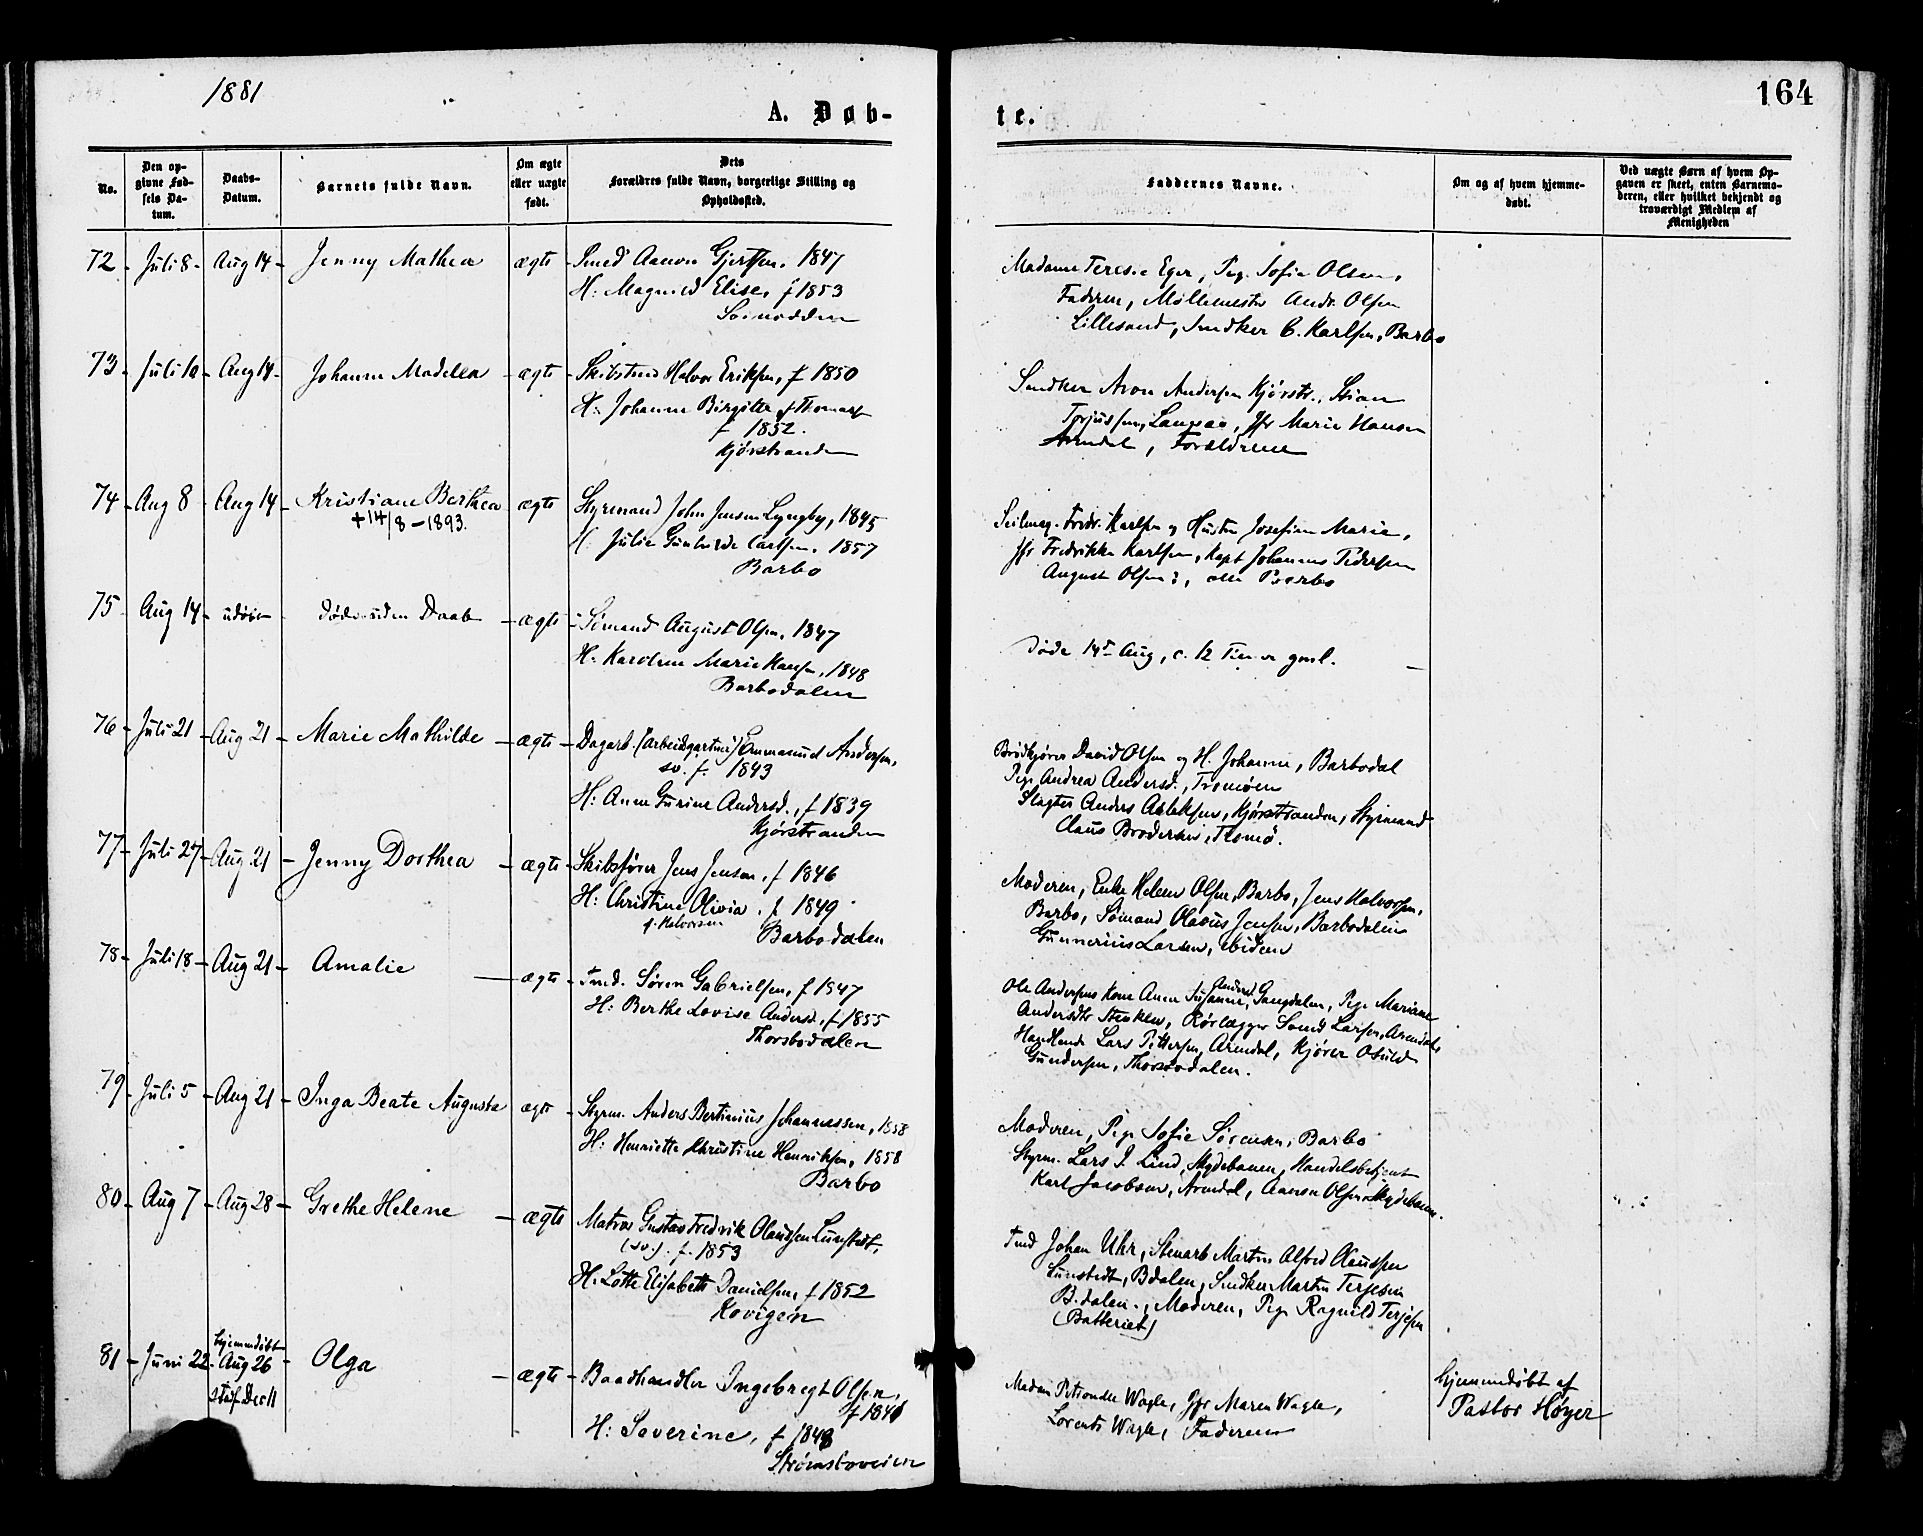 1881
164
A. Døb-
te.
No.
Den op-
givne Fød-
sels Da-
tum.
Daabs-
Datum.
Barnets fulde Navn.
Om ægte
eller uægte
født.
Dets
Forældres fulde Navn, borgerlige Stilling og
Opholdssted.
Faddernes Navne.
Om og af hvem hjemme-
døbt.
Ved uægte Børn af hvem Op-
gaven er skeet, enten Barnemo-
deren, eller hvilket bekjendt og
troværdigt Medlem af
Menigheden
72 - Juli 8 - Aug 14 - Jenny Mathea ægte - Smed Aanon Gjertsen. 1847
H: Magnild Elise, f 1853
Madame Teresie Eger, Pig. Sofie Olsen,
Faderen, Møllemester Andr. Olsen
Lillesand, Snedker C. Karlsen, Barbo
73 - Juli 10 - Aug 14 - Johanne Madella - ægte - Skibstmd Halvor Eriksen, f 1850
H: Johanne Birgitte f Thomass
f 1852.
Kjørstranden
Snedker Aron Andersen Kjørstr., Stian
Torjussen, Langsæ, Jfr Marie Hansen
Arendal, Forældrene
74 - Aug 8 - Aug 14 - Kristiane Berthea ægte - Styrmand John Jensen Lyngby, 1845
+ 14/8 - 1893.
H: Julie Gunhilde Carlsen. 1857
Barbo
Seilmag. Fredr. Karlsen og Hustru Josefine Marie,
Jfr Fredrikke Karlsen, Kapt Johannes Pedersen
August Olsen, alle Barbo
75 - Aug 14 - udøbt døde uden Daab - ægte - Sømand August Olsen, 1847
H: Karoline Marie Hansen, 1848
Barbodalen
Døde 14de Aug, c. 12 Timer gml.
76 - Juli 21 - Aug 21 - Marie Mathilde - ægte - Dagarb. (Arbeidsgartner) Emmanuel Andersen,
sv. f. 1843
H: Anne Gurine Andersd., f 1839
Kjørstranden
Brødkjører David Olsen og H. Johanne, Barbodal
Pige Andrea Andersd., Tromøen
Slagter Anders Aslaksen, Kjørstranden, Styrmand
Claus Brodersen, Tromø.
77 - Juli 27 - Aug 21 - Jenny Dorthea - ægte - Skibsfører Jens Jensen, f 1846
H: Christine Olivia, f 1849
f. Halvorsen
Barbodalen
Moderen, Enke Helene Olsen, Barbo, Jens Halvorsen,
Barbo, Sømand Olaves Jensen, Barbodalen
Gunnerius Larsen, ibidem
78 - Juli 18 - Aug 21 - Amalie - ægte - Tmd. Søren Gabrielsen, f 1847
H: Berthe Lovise Andersd., f 1855
Thorsbodalen
Ole Andersens Kone Anne Susanne Andersd, Gangdalen, Pige Mariane
Andersdtr Stenken, Rørlægger Larsen, Arendal,
Handlende Lars Pettersen, Arendal, Kjører Osuld
Gundersen, Thorsbodalen.
79 - Juli 5 - Aug 21 - Inga Beate Augusta ægte - Styrm. Anders Bertinius Johannessen, 1858
H: Henriette Christine Henriksen, 1858
Barbo
Moderen, Pige Sofie Sørensen, Barbo
Styrm. Lars J. Lind, Skydebanen, Handelsbetjent
Karl Jacobsen, Arendal, Aanon Olsen Skydebanen.
80 - Aug 7 - Aug 28 - Grethe Helene - ægte Matros Gustav Fredrik Olaussen Lunstedt,
(sv.) f. 1853
H: Lotte Elisabeth Danielsen, f 1852
Kovigen
Tmd Johan Uhr, Stenarb Martin Alfred Olaussen
Lunstedt, Bdalen, Snedker Martin Terjesen
B.dalen., Moderen, Pige Ragnild Terjesen
(Batteriet)
81 - Juni 22 - hjemmdøbt
Aug 26 - Olga - ægte - Baadhandler Ingebregt Olsen,
stadf Dec 11
H: Severine, f 1848
Strømsboveien
Petronelle Wagle, Jfr Maren Wagle,
Lorents Wagle, Faderen
hjemmdøbt af
Pastor Høyer